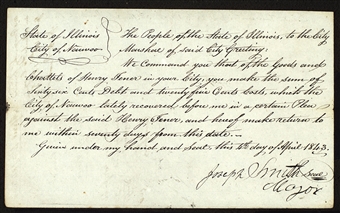 State of Illinois
City of Nauvoo
The People of the State of Illinois, to the City
Marshal of said City Greeting.
We Command you that of the Goods and
Chattels of Henry Tenor in your City, you make the sum of
Sixty six Cents Debt and twenty five Cents Costs, which the
City of Nauvoo lately recovered before me in a certain Plea
against the said Henry Tenor, and hereof make return to
me within seventy days from this date.
Given under my hand, and seal this day of April 1843.
Joseph Smith
Mayor